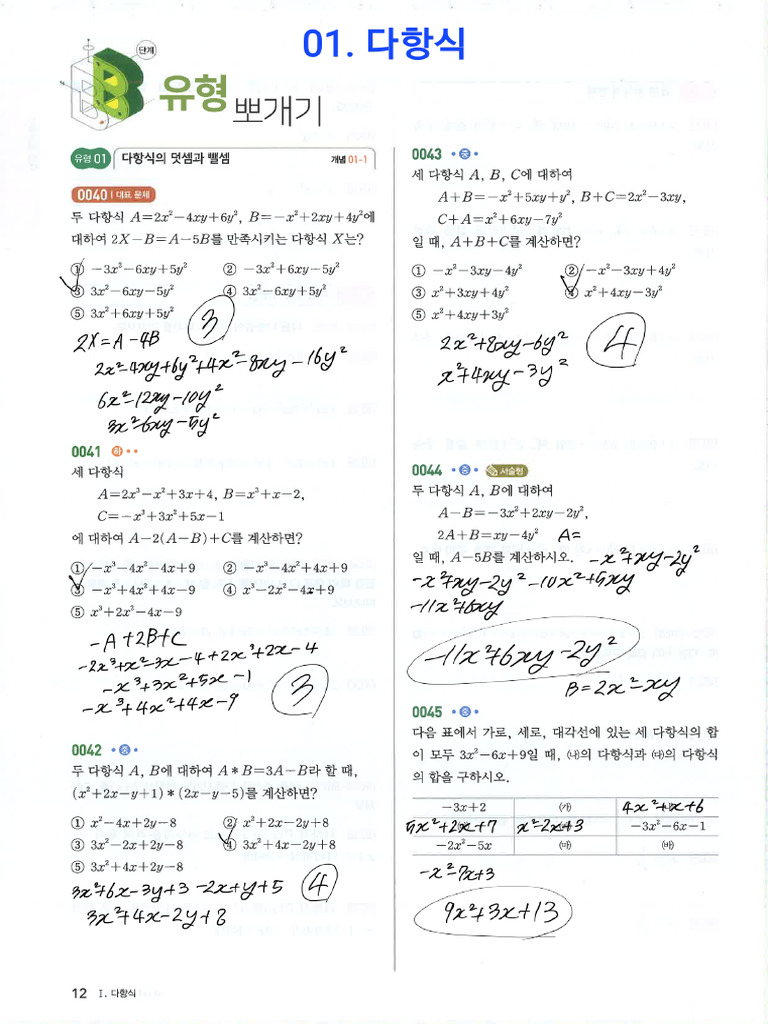 01. 다항식
단계
B 유형 뽀개기
유형 01 다항식의 덧셈과 뺄셈 개념 01-1
0040 대표 문제
두 다항식 A=2x²-4xy+6y², B=-x²+2xy+4y²에
대하여 2X-B=A-5B를 만족시키는 다항식 X는?
① -3x²-6xy+5y² ② -3x²+6xy-5y²
③ 3x²-6xy-5y² ④ 3x²-6xy+5y²
⑤ 3x²+6xy+5y²
3
2X=A-4B
2x²-4xy+6y²+4x²-8xy-16y²
6x²-12xy-10y²
3x²-6xy-5y²
0041 하
세 다항식
A=2x³-x²+3x+4, B=x³+x-2,
C=-x³+3x²+5x-1
에 대하여 A-2(A-B)+C를 계산하면?
① -x³-4x²-4x+9 ② -x³-4x²+4x+9
③ -x³+4x²+4x-9 ④ x³-2x²-4x+9
⑤ x³+2x²-4x-9
-A+2B+C
-2x³+x²-3x-4+2x³+2x-4
-x³+3x²+5x-1
-x³+4x²+4x-9
3
0042 중
두 다항식 A, B에 대하여 A*B=3A-B라 할 때,
(x²+2x-y+1)*(2x-y-5)를 계산하면?
① x²-4x+2y-8 ② x²+2x-2y+8
③ 3x²-2x+2y-8 ④ 3x²+4x-2y+8
⑤ 3x²+4x+2y-8
3x²+6x-3y+3-2x+y+5
4
3x²+4x-2y+8
12 I. 다항식
0043 중
세 다항식 A, B, C에 대하여
A+B=-x²+5xy+y², B+C=2x²-3xy,
C+A=x²+6xy-7y²
일 때, A+B+C를 계산하면?
① -x²-3xy-4y² ② -x²-3xy+4y²
③ x²+3xy+4y² ④ x²+4xy-3y²
⑤ x²+4xy+3y²
2x²+8xy-6y²
x²+4xy-3y²
4
0044 중 서술형
두 다항식 A, B에 대하여
A-B=-3x²+2xy-2y²,
2A+B=xy-4y² A=
일 때, A-5B를 계산하시오. -x²+xy-2y²
-x²+xy-2y²-10x²+5xy
-11x²+6xy
-11x²+6xy-2y²
B=2x²-xy
0045 중
다음 표에서 가로, 세로, 대각선에 있는 세 다항식의 합
이 모두 3x²-6x+9일 때, ㈏의 다항식과 ㈐의 다항식
의 합을 구하시오.
-3x+2 ㈎ 4x²+x+6
5x²+2x+7 x²-2x+3 -3x²-6x-1
-2x²-5x ㈑ ㈓
-x²-7x+3
9x²+3x+13